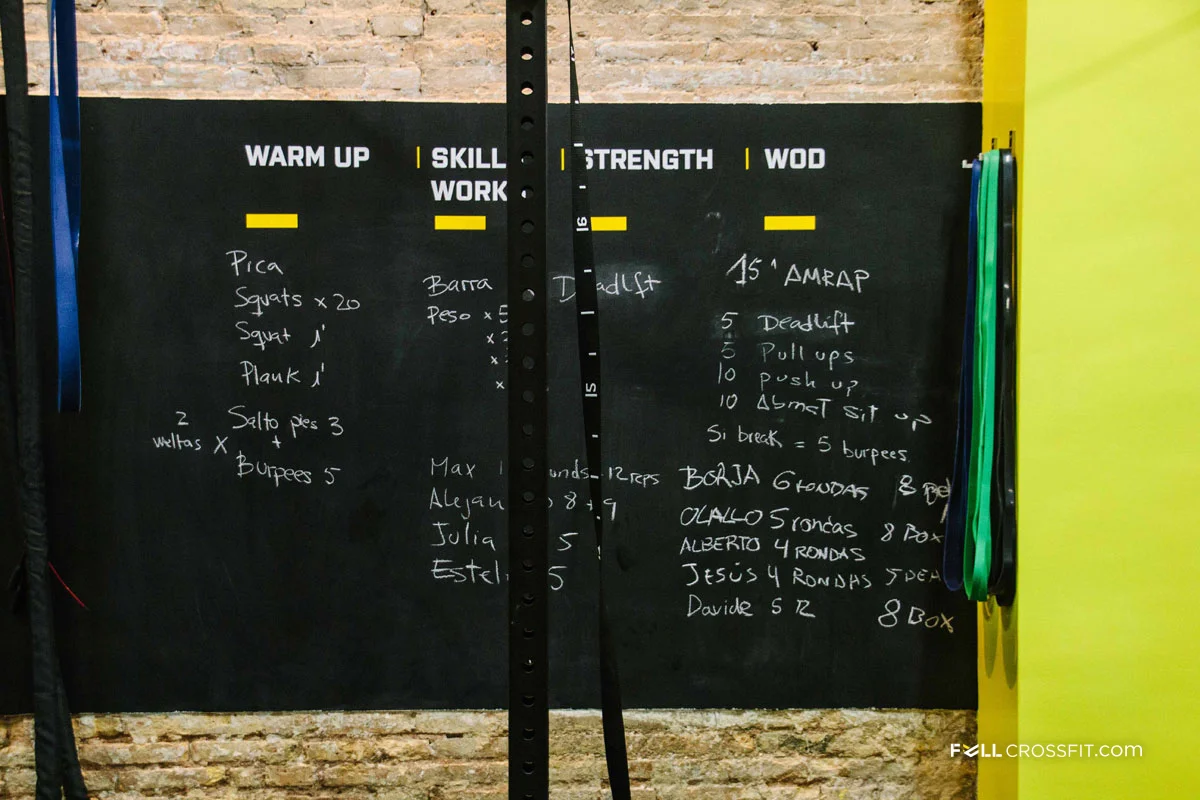 WARM UP
SKILL
WORK
STRENGTH
WOD
Pica
Squats x 20
Squat 1'
Plank 1'
2
vueltas x
Salto pies 3
+
Burpees 5
Barra
Peso x 5
x
x
x
Deadlift
15' AMRAP
5 Deadlift
5 Pull ups
10 push up
10 Abmat sit up
Si break = 5 burpees
Max 12 reps
8 + 9
Julia 5
Estel 5
BORJA 6 rondas 8
OLALLO 5 rondas 8 Box
ALBERTO 4 RONDAS
JESÚS 4 RONDAS 5 DEA
Davide 5 R 8 Box
16
15
FULLCROSSFIT.com